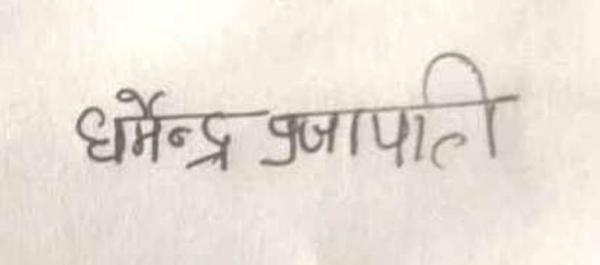 धर्मेन्द्र प्रजापति